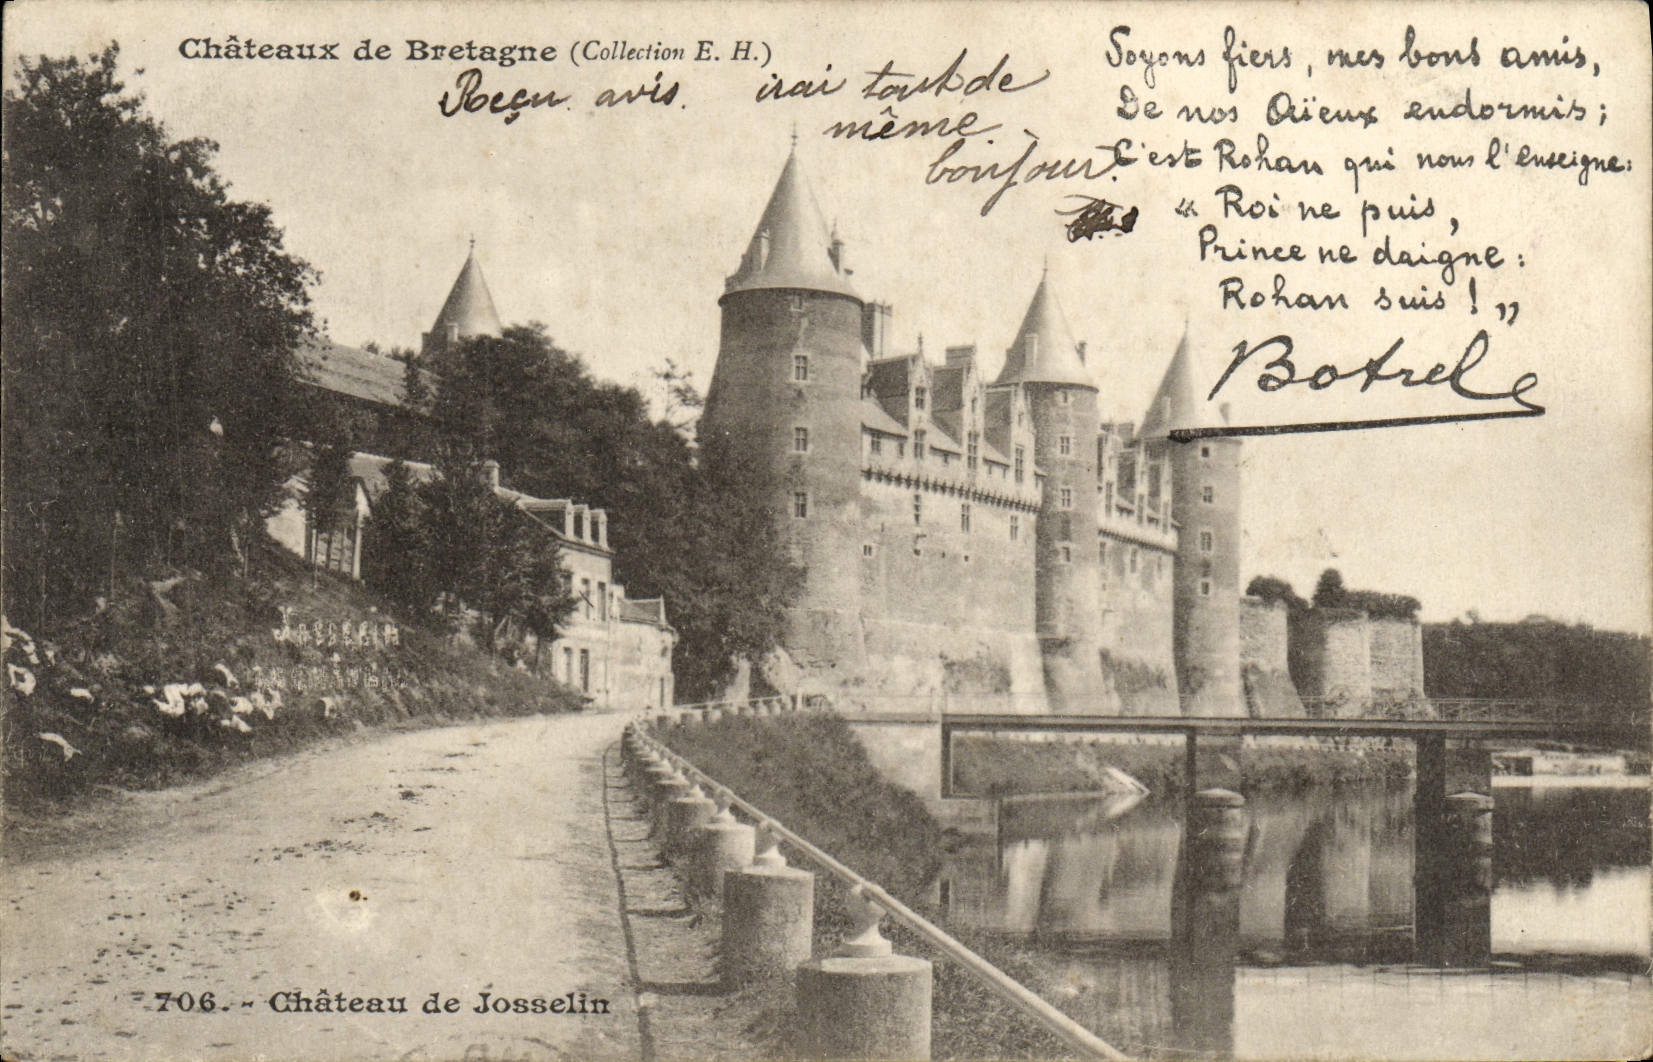 Châteaux de Bretagne (Collection E. H.)
Reçu avis. irai tout de
même
bonjour.
Soyons fiers, mes bons amis,
De nos Aïeux endormis;
C'est Rohan qui nous l'enseigne:
« Roi ne puis,
Prince ne daigne:
Rohan suis! »
Botrel
706. - Château de Josselin